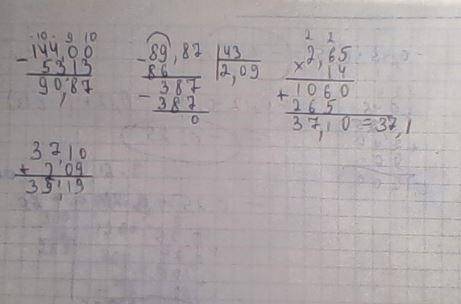 10 9 10
144,00
- 53,13
90,87
- 89,87 | 43
86 2,09
- 387
387
0
2 2
2,65
× 14
+ 1060
265
37,10 = 37,1
37,10
+ 2,09
39,19